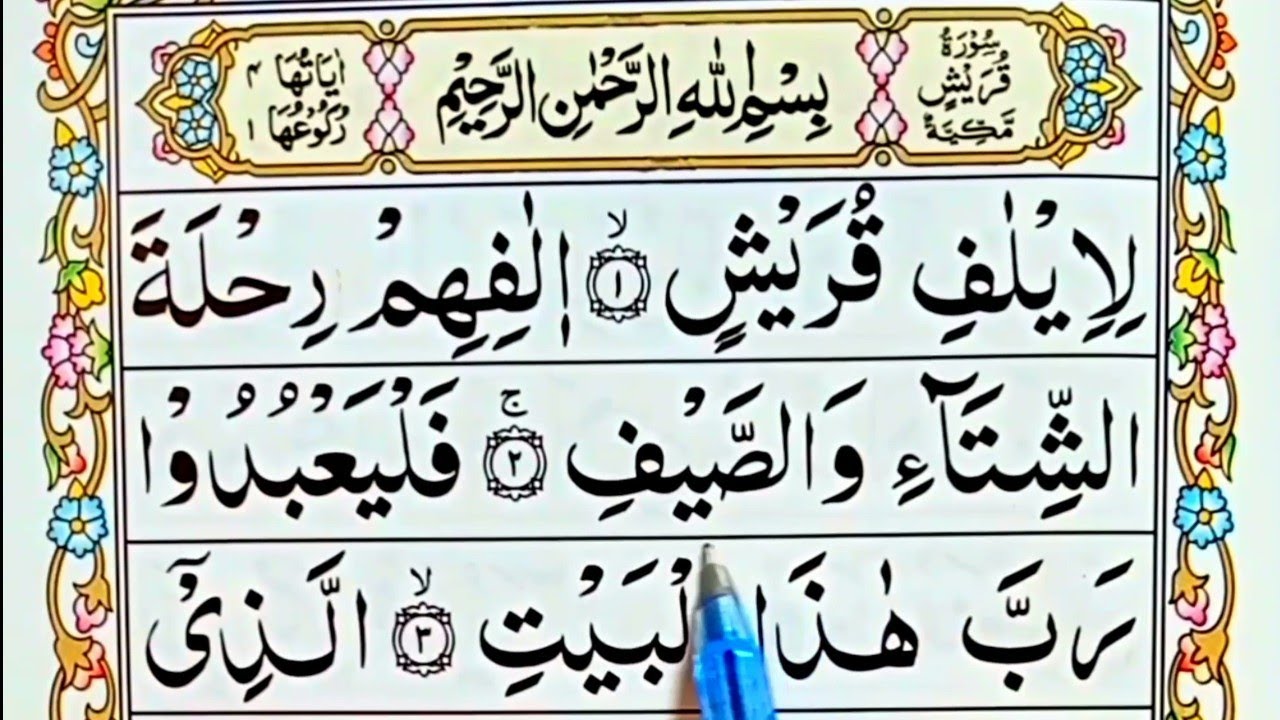 سُوْرَةُ قُرَيْشٍ مَّكِّيَّةٌ
بِسْمِ اللّٰهِ الرَّحْمٰنِ الرَّحِيْمِ
اٰيَاتُهَا ۴ رُكُوْعُهَا ۱
لِاِيْلٰفِ قُرَيْشٍ ۙ‏﴿۱﴾ اٖلٰفِهِمْ رِحْلَةَ
الشِّتَآءِ وَالصَّيْفِ ۚ‏﴿۲﴾ فَلْيَعْبُدُوْا
رَبَّ هٰذَا الْبَيْتِ ۙ‏﴿۳﴾ الَّذِىْۤ